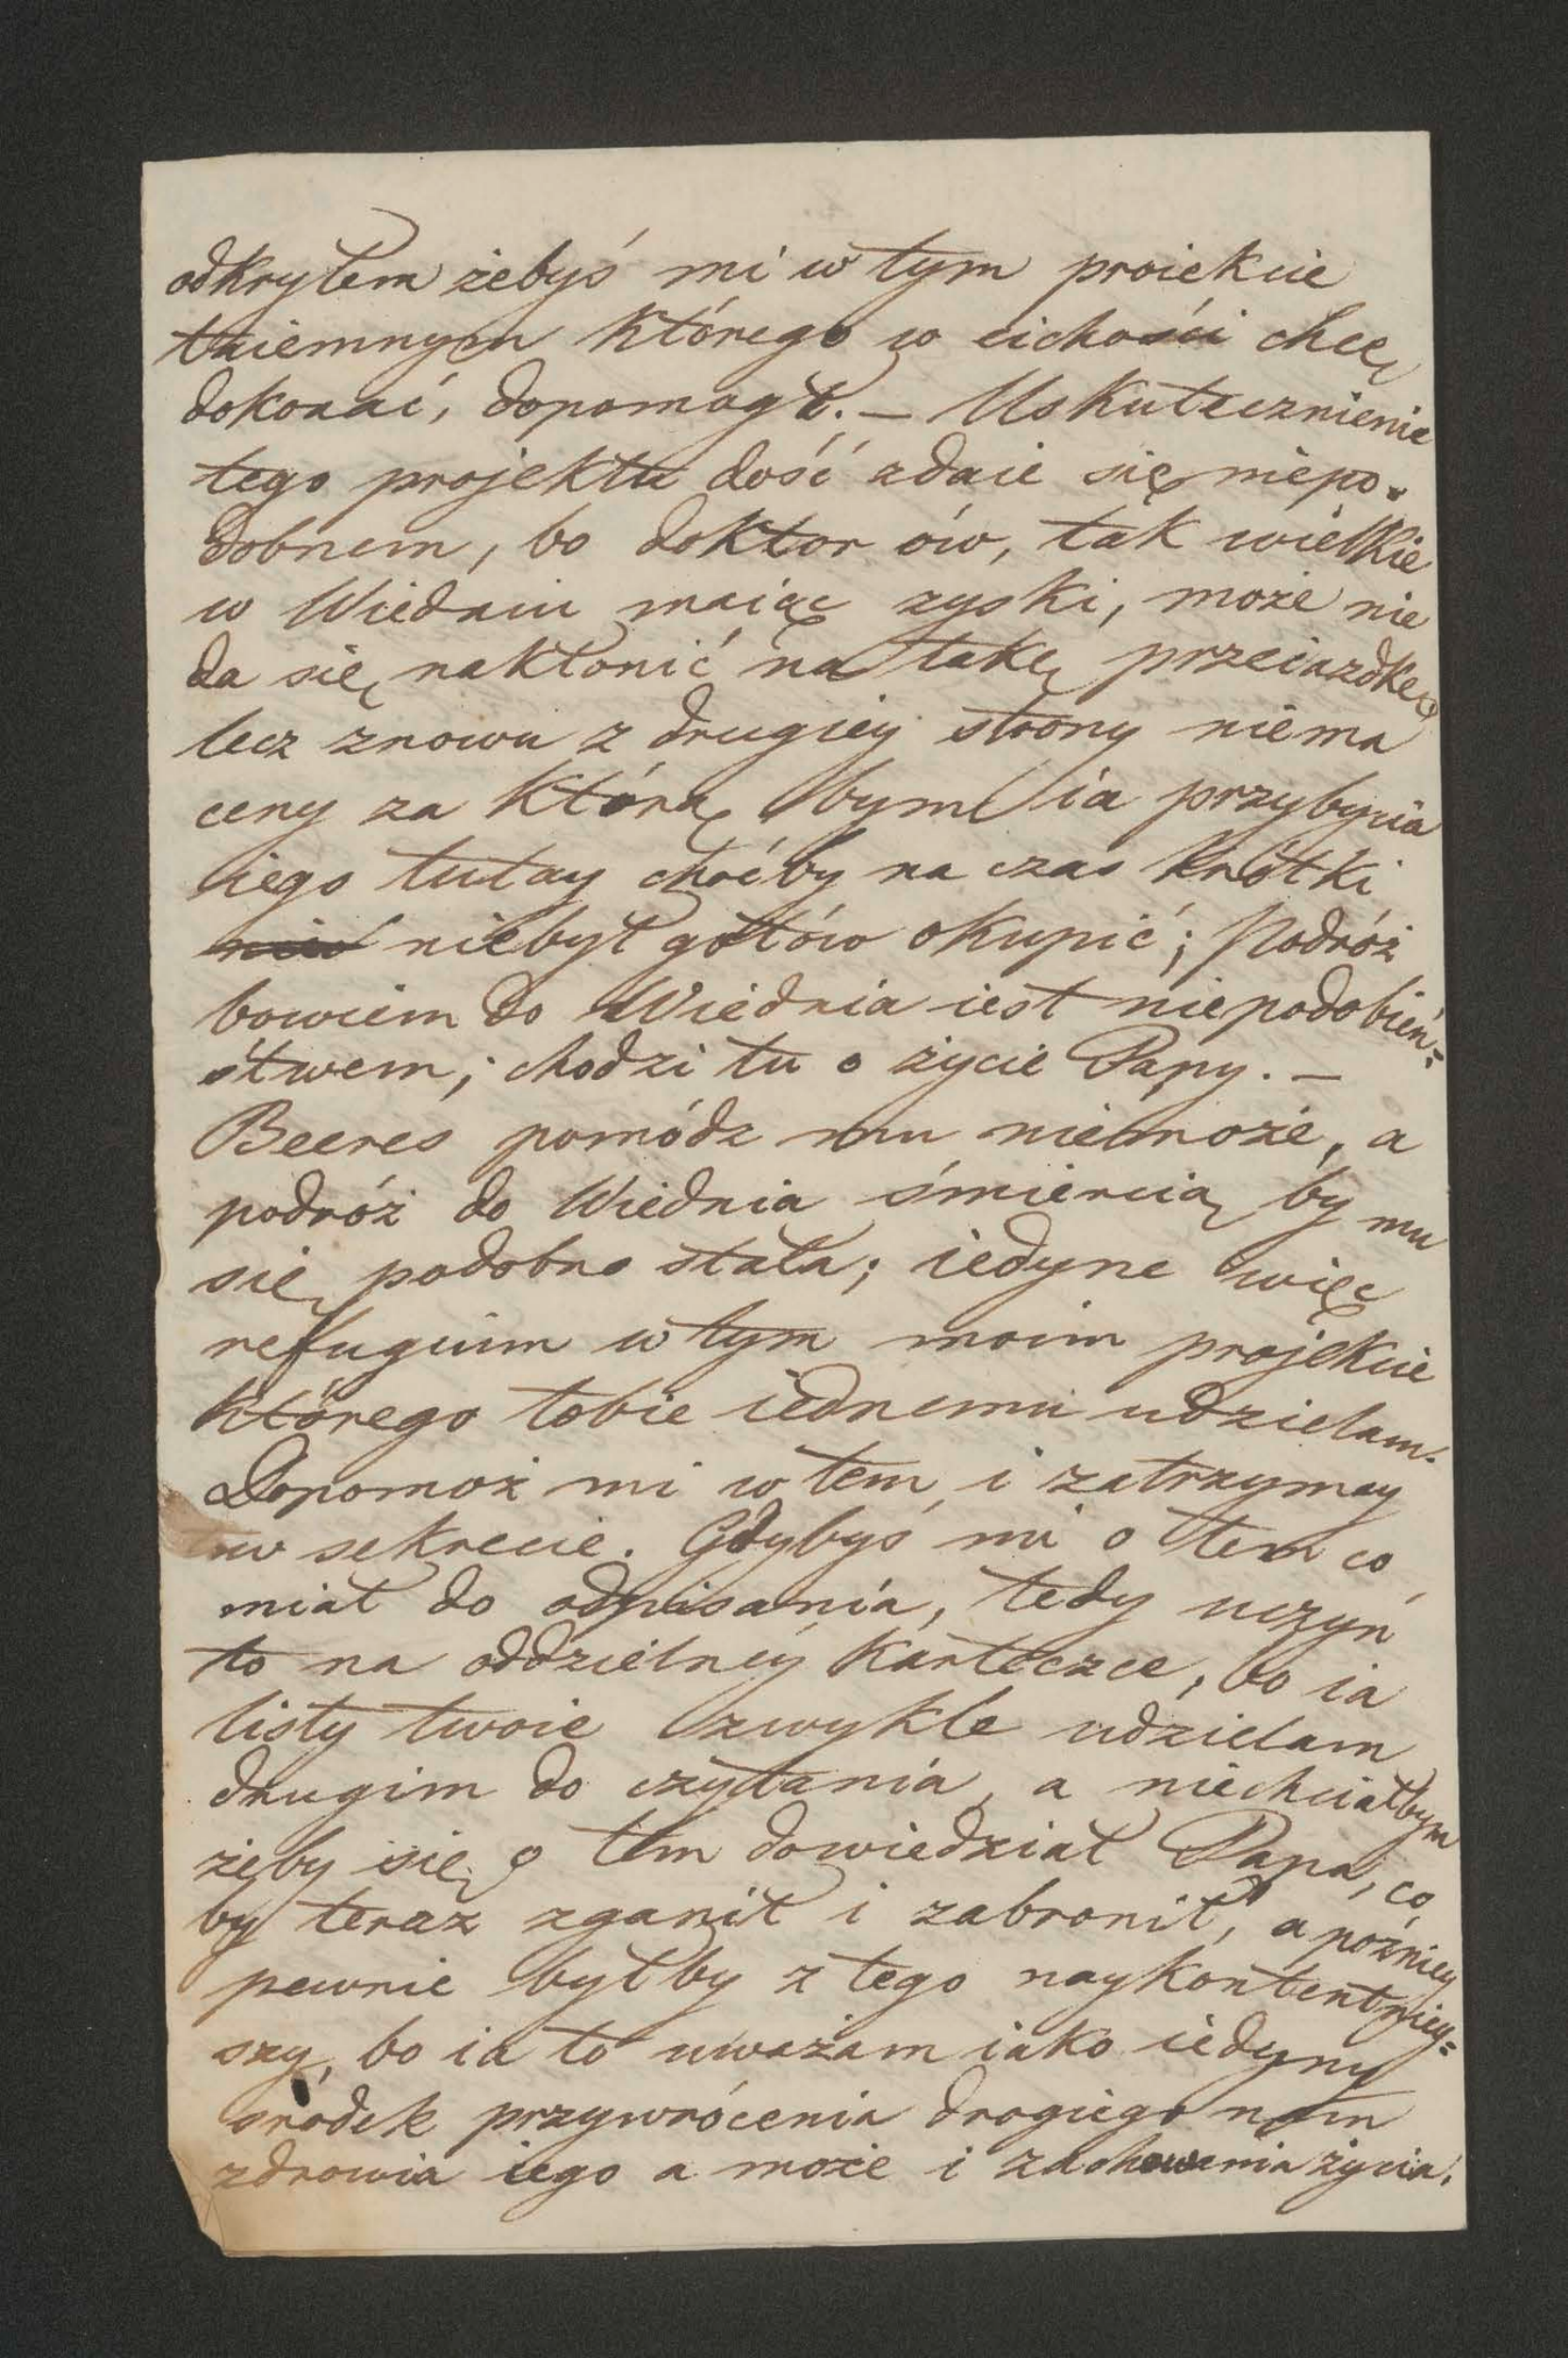 odkryłem żebyś mi w tym proiekcie
taiemnym którego w cichości chcę
dokonać, dopomógł. – Uskutecznienie
tego projektu dość zdaie się niepo-
dobnem, bo doktor ów, tak wielkie
w Wiedniu maiąc zyski, może nie
da się nakłonić na takę przeiażdkę,
lecz znowu z drugiey strony niema
ceny za którą bym ia przybycia
iego tutay choćby na czas krótki
niebył gotów okupić; Podróż
bowiem do Wiednia iest niepodobień=
stwem; chodzi tu o życie Papy. –
Beeres pomódz mu niemoże, a
podróż do Wiednia śmiercią by mu
się podobno stała; iedyne więc
refugium w tym moim projekcie
którego tobie iednemu udzielam.
Dopomoż mi w tem i zatrzymay
w sekrecie. Gdybyś mi o tem co
miał do odpisania, tedy uczyń
to na oddzielney karteczce, bo ia
listy twoie zwykle udzielam
drugim do czytania, a niechciałbym
żeby się o tem dowiedział Papa, co
by teraz zganił i zabronił, a pózniey
pewnie byłby z tego naykontentniey=
szy, bo ia to uważam iako iedyny
srodek przywrócenia drogiego nam
zdrowia iego a może i zachowania życia.